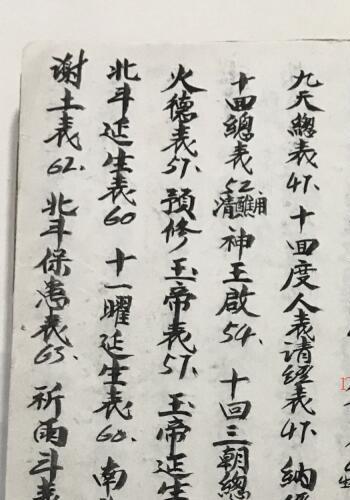 九天總表47、十回度人表請經表47、納
十回總表52清醮用神王啟54、十回三朝總
火德表57、預修玉帝表57、玉帝延生
北斗延生表60 十一曜延生表60、南
谢土表62、北斗保患表65、祈雨斗表